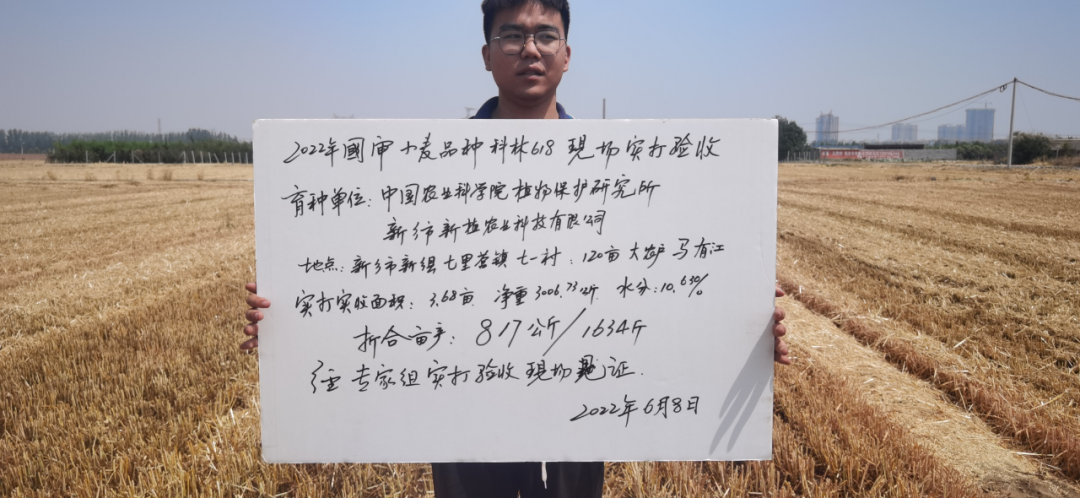 2022年國审小麦品种科林618现场实打验收
育种单位：中国农业科学院植物保护研究所
新乡市新植农业科技有限公司
地点：新乡市新乡县七里营镇七一村：120亩大农户马有江
实打实收面积：3.68亩 净重3006.73公斤 水分：10.630%
折合亩产：817公斤/1634斤
经专家组实打验收现场见证.
2022年6月8日